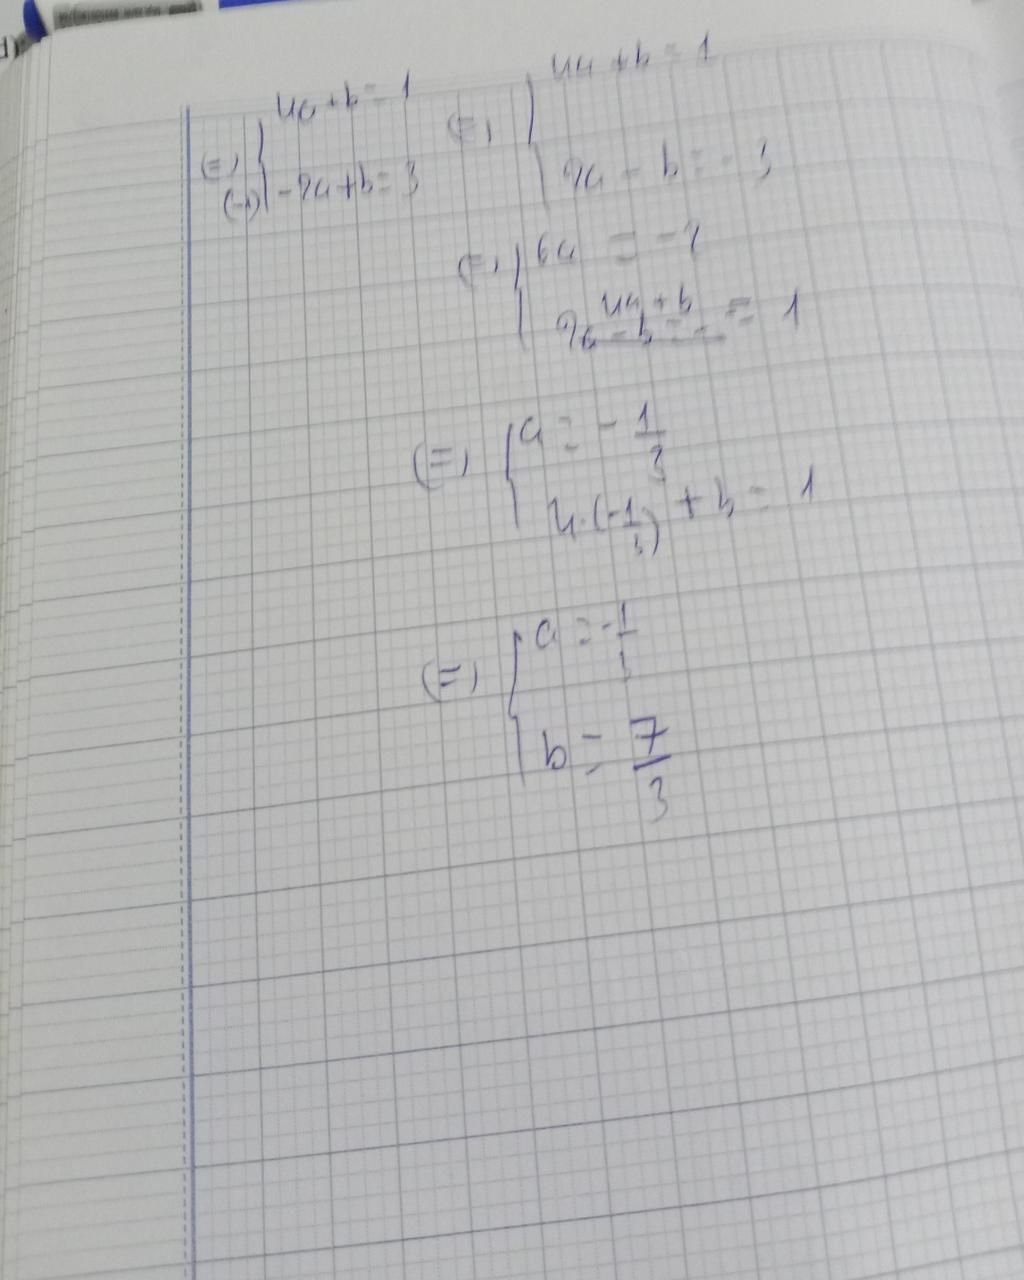 (=) { 4a + b = 1
(-1) { -2a + b = 3
(=) { 4a + b = 1
2a - b = -3
(=) { 6a = -2
4a + b = 1
2a - b = -
(=) { a = - 1/3
4.(-1/3) + b = 1
(=) { a = - 1/3
b = 7/3